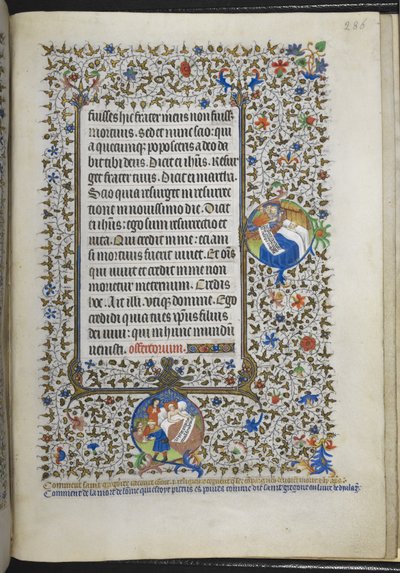 286
fuisses hic frater meus non fuiss
mortuus. Sed et nunc scio: qui
a quecumqz poposceris a deo da
bit tibi deus. Dicit ei ihūs. Resur
get frater tuus. Dicit ei martha.
Scio quia resurget in resurre
ctione in nouissimo die. Dicit
ei ihūs: ego sum resurrectio et
uita. Qui credit in me: eciam
si mortuus fuerit uiuet. Et oīs
qui uiuit et credit in me non
morietur in eternum. Credis
hoc. Ait illi. vtiqz domine. Ego
credidi quia tu es xp̄us filius
dei uiui: qui in hunc mundū
uenisti. offertorium.
Comment saint
Comment de la mort de lōme qui estoye pietris et poures comme dit saint gregoire ou liure de dyalog.